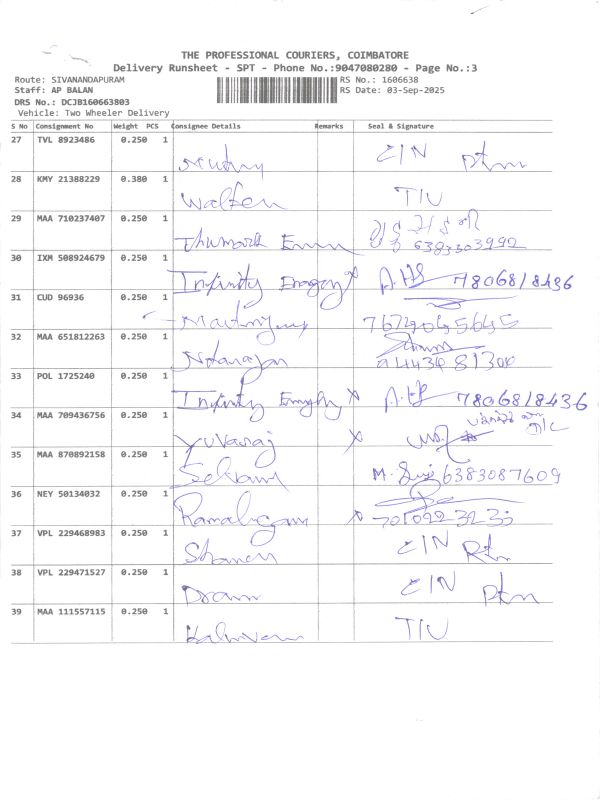 THE PROFESSIONAL COURIERS, COIMBATORE
Delivery Runsheet - SPT - Phone No.:9047080280 - Page No.:3
Route: SIVANANDAPURAM RS No.: 1606638
Staff: AP BALAN RS Date: 03-Sep-2025
DRS No.: DCJB160663803
Vehicle: Two Wheeler Delivery
S No Consignment No Weight PCS Consignee Details Remarks Seal & Signature
27 TVL 8923486 0.250 1 C/N Rtn
28 KMY 21388229 0.380 1 T/U
29 MAA 710237407 0.250 1 6383303992
30 IXM 508924679 0.250 1 Infinity x 7806818436
31 CUD 96936 0.250 1
32 MAA 651812263 0.250 1 Natarajan
33 POL 1725240 0.250 1 Infinity x 7806818436
34 MAA 709436756 0.250 1 Yuvaraj x
35 MAA 870892158 0.250 1 Selvam M. 6383087609
36 NEY 50134032 0.250 1 Ramalingam x
37 VPL 229468983 0.250 1 C/N Rtn
38 VPL 229471527 0.250 1 C/N Rtn
39 MAA 111557115 0.250 1 T/U